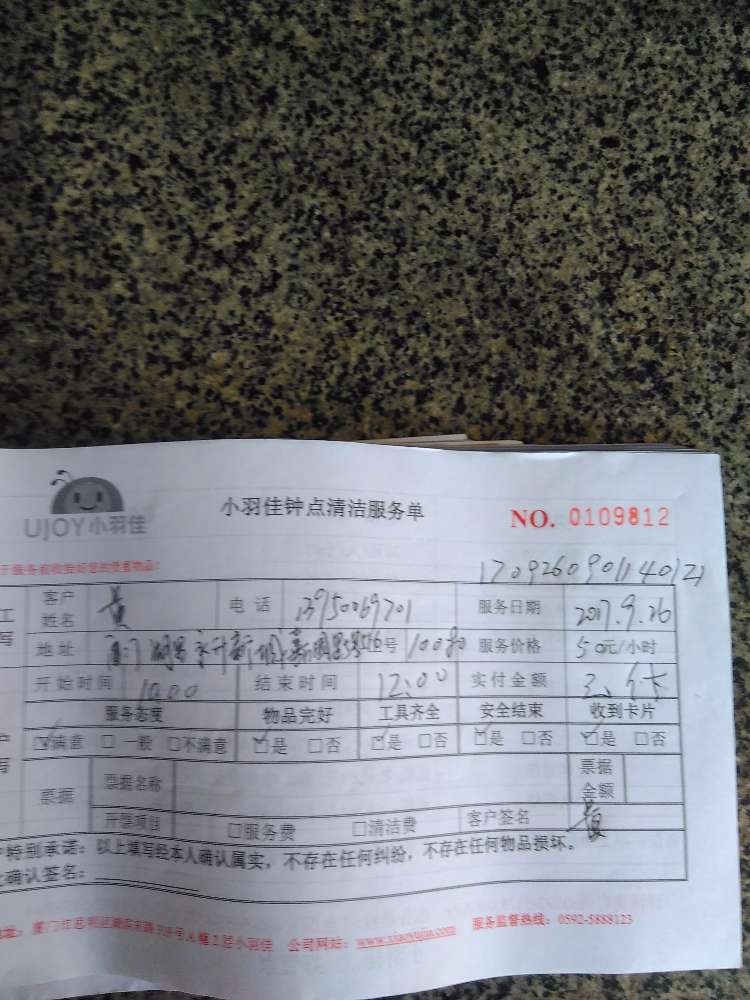 UJOY小羽佳
小羽佳钟点清洁服务单
NO. 0109812
于服务前收拾好您的贵重物品!
170926090114012
工 客户姓名 黄 电话 13950069701 服务日期 2017.9.26
写 地址 厦门 号 服务价格 50元/小时
开始时间 10.00 结束时间 12.00 实付金额 卡
服务态度 物品完好 工具齐全 安全结束 收到卡片
☑满意 □一般 □不满意 ☑是 □否 ☑是 □否 ☑是 □否 ☑是 □否
户
写
票据 票据名称 票据金额
开票项目 □服务费 □清洁费 客户签名 黄
户特别承诺:以上填写经本人确认属实,不存在任何纠纷,不存在任何物品损坏。
确认签名:
地址:厦门市思明区湖滨东路 号 2层小羽佳 公司网站:www.xiaoyujia.com 服务监督热线:0592-5888123